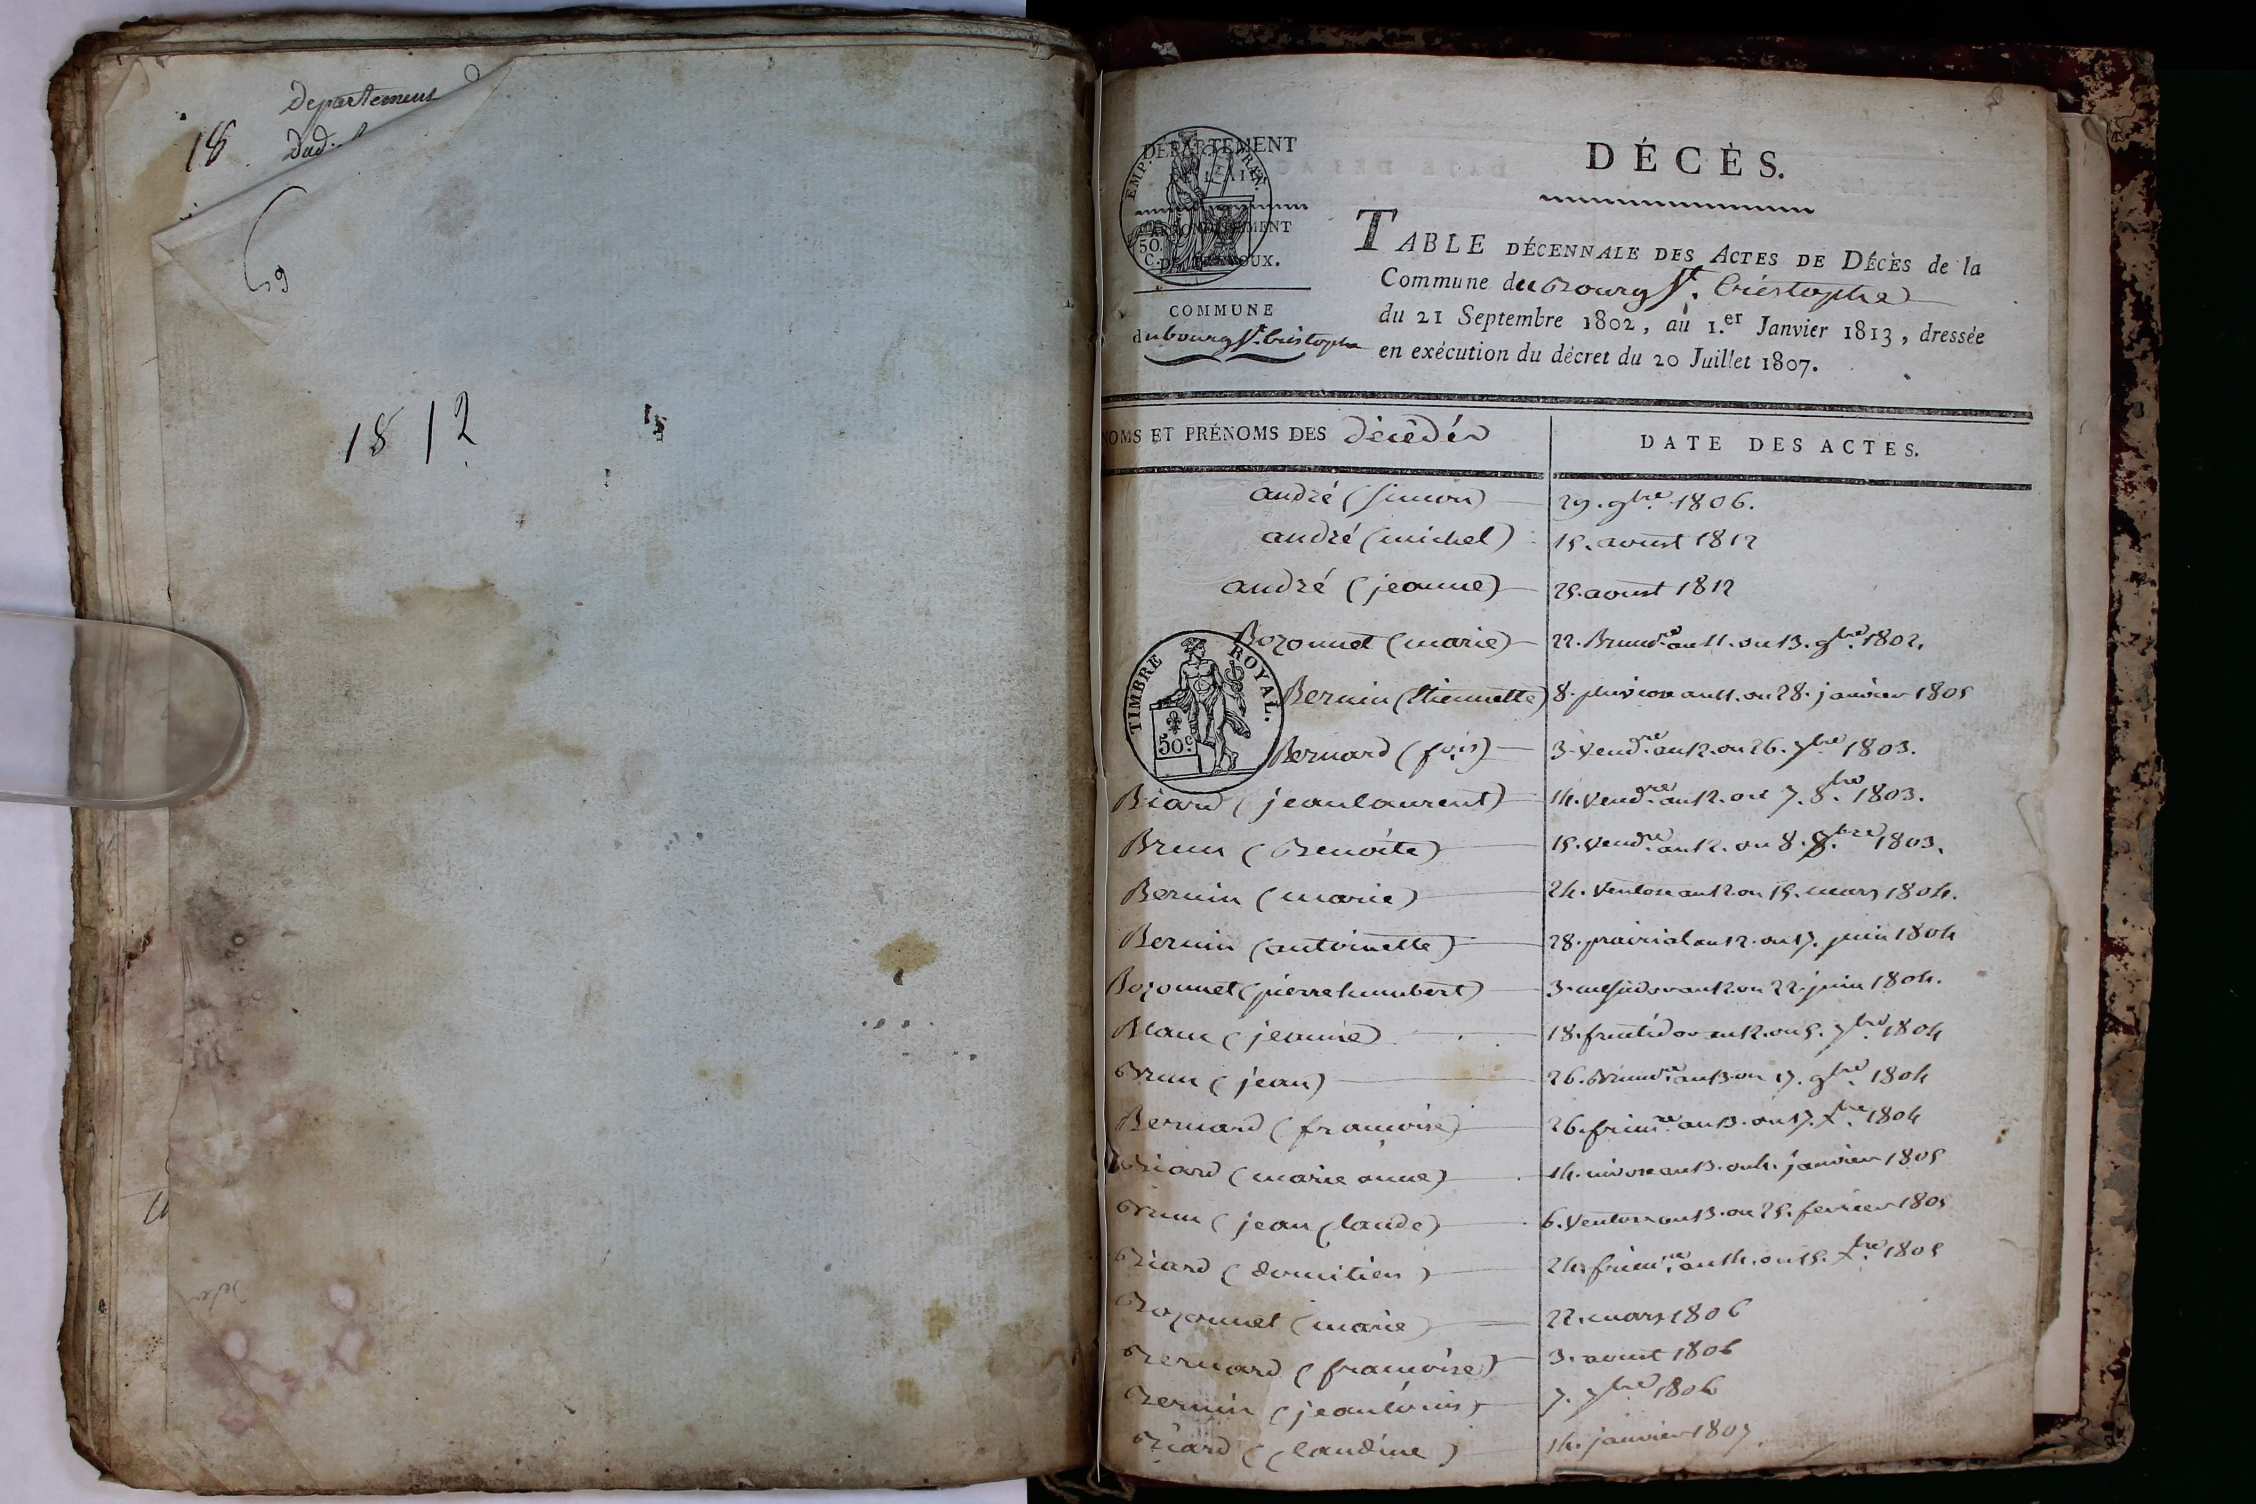 departement
18
Dud
9
1812
DÉPARTEMENT
DE L'AIN
ARRONDISSEMENT
DE TRÉVOUX.
50.
C.
COMMUNE
du bourg St. Cristophe
DÉCÈS.
TABLE DÉCENNALE DES ACTES DE DÉCÈS de la
Commune du Bourg St. Cristophe
du 21 Septembre 1802, au 1.er Janvier 1813, dressée
en exécution du décret du 20 Juillet 1807.
NOMS ET PRÉNOMS DES décédés
DATE DES ACTES.
andré (simon) 29. 9bre. 1806.
andré (michel) 15. aoust 1812
andré (jeanne) 25. aoust 1812
Bozonnet (marie) 22. Brumre. an 11. ou 13. 9bre. 1802.
TIMBRE ROYAL.
50c.
Bernin (Etiennette) 8. pluviose an 11. ou 28. janvier 1803
Bernard (fois) 3. Vendre. an 12. ou 26. 7bre 1803.
Biard (jean laurent) 14. Vendre. an 12. ou 7. 8.bre 1803.
Brun (Benoite) 15. Vendre. an 12. ou 8. 8.bre 1803.
Bernin (marie) 24. Ventose an 12 ou 15. mars 1804.
Bernin (antoinette) 28. prairial an 12. ou 17. juin 1804
Bozonnet (pierre humbert) 3. messidor an 12. ou 22. juin 1804.
Blanc (jeanne) 18. fructidor an 12. ou 5. 7bre. 1804
Brun (jean) 26. Brumre. an 13 ou 17. 9bre. 1804
Bernard (francoise) 26. frimre. an 13. ou 17. Xbre. 1804
Biard (marie anne) 14. nivose an 13. ou 4. janvier 1805
Brun (jean Claude) 6. Ventose an 13. ou 25. fevrier 1805
Biard (domitien) 24. frimre. an 14. ou 15. Xbre. 1805
Bozonnet (marie) 22. mars 1806
Bernard (francoise) 3. aoust 1806
Bernin (jean louis) 7. 7bre 1806
Biard (Claudine) 14. janvier 1807